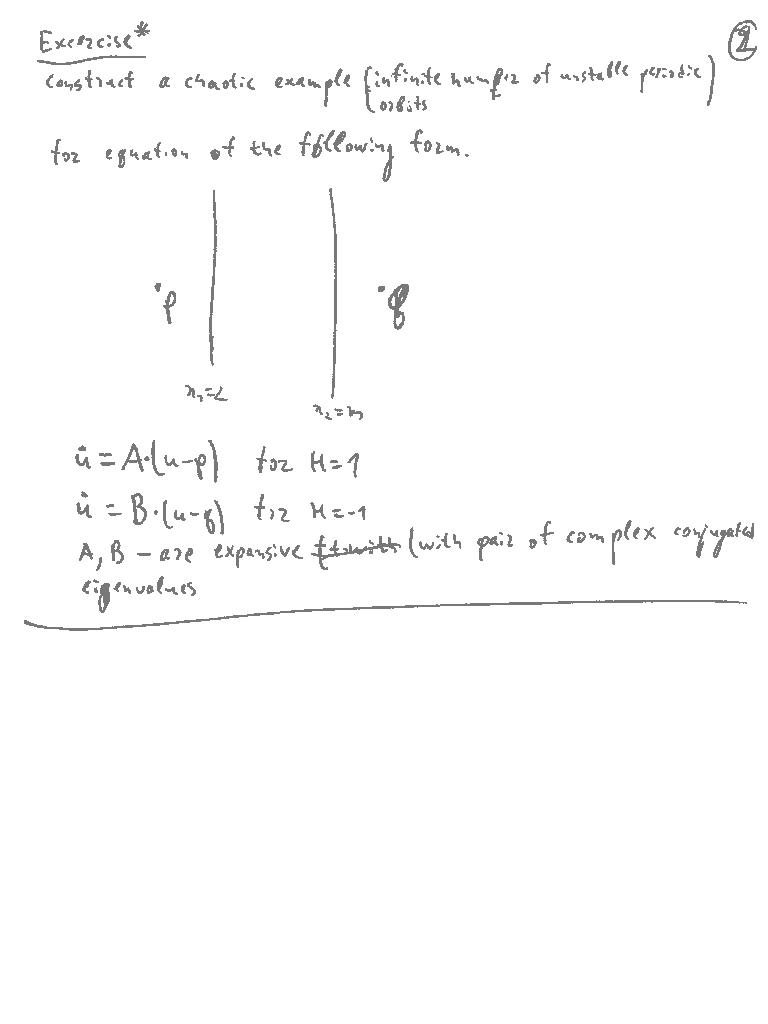 Exercise*
②
construct a chaotic example (infinite number of unstable periodic
orbits)
for equation of the following form.
p
q
x₁=
x₂=
u̇ = A·(u-p) for H=1
u̇ = B·(u-q) for H=-1
A, B - are expansive (with pair of complex conjugated
eigenvalues